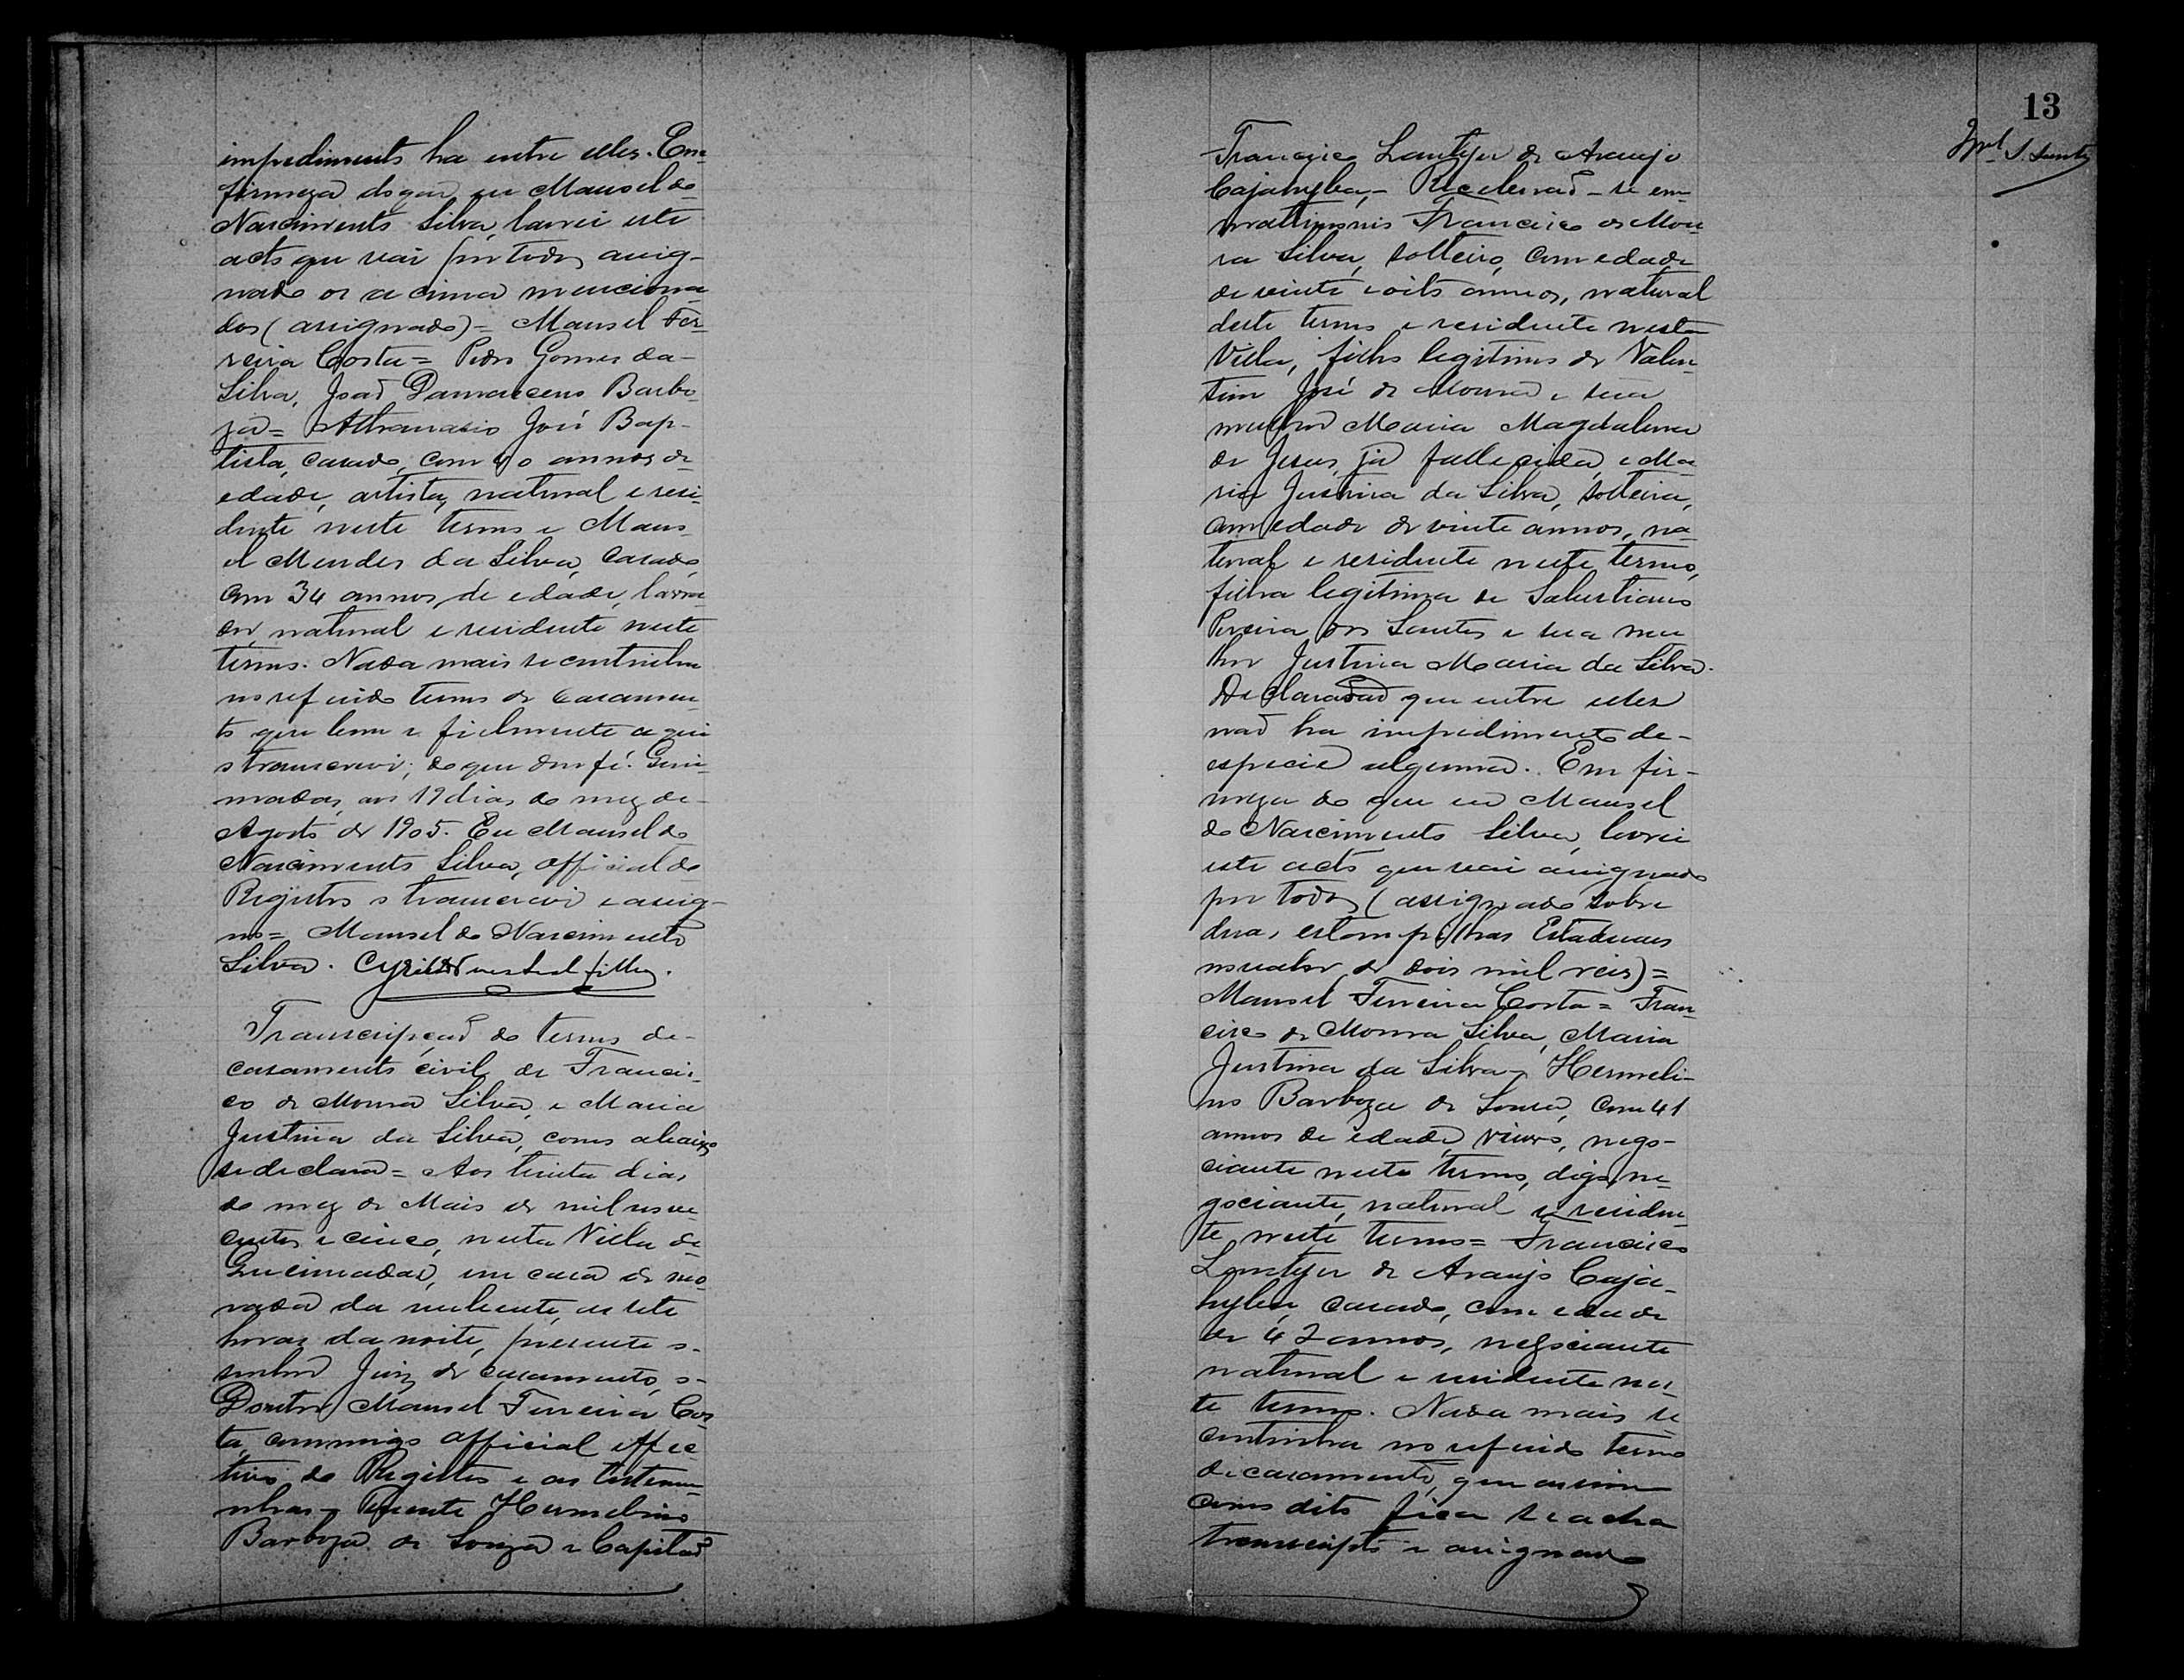 impedimento ha entre elles. Em
firmeza do que, eu Manoel do
Nascimento Silva, lavrei este
acto que vai por todos assig-
nado os acima menciona
dos (assignado) = Manoel Fer-
reira Costa = Pedro Gomes da
Silva, João Damasceno Barbo-
za = Athanasio José Bap-
tista, casado, com 40 annos de
edade, artista, natural e resi-
dente neste termo e Mano-
el Mendes da Silva, casado,
com 34 annos de edade, lavra-
dor, natural e residente neste
termo. Nada mais se continha
no referido termo de casamen-
to que bem e fielmente aqui
o transcrevi; do que dou fé. Quei-
madas, aos 19 dias do mez de
Agosto de 1905. Eu Manoel do
Nascimento Silva, official do
Registro o transcrevi e assig-
no = Manoel do Nascimento
Silva.
Transcripção do termo de
casamento civil de Francis-
co de Moura Silva, e Maria
Justina da Silva, como abaixo
se declara = Aos trinta dias
do mez de Maio de mil nove
centos e cinco, nesta Villa de
Queimadas, em casa de mo
rada da nubente, as sete
horas da noite, presente o
senhor Juiz de casamento, o
Doutor Manoel Ferreira Cos
ta, commigo official effec
tivo do Registro e as testemu-
nhas = Tenente Hermelino
Barboza de Souza e Capitão
13
Francisco Lantyer de Araujo
Cajahyba, - Receberaõ - se em
mattrimonio Francisco de Mou
ra Silva, solteiro, com edade
de vinte e oito annos, natural
deste termo e residente nesta
Villa, filho legitimo de Valen
tim José de Moura e sua
mulher Maria Magdalena
de Jesus, já fallecida, e Ma
ria Justina da Silva, solteira,
com edade de vinte annos, na
tural e residente neste termo,
filha legitima de Salustiano
Pereira dos Santos e sua mu
lher Justina Maria da Silva.
Declararaõ que entre elles
naõ ha impedimento de
especie alguma. Em fir-
meza do que eu Manoel
do Nascimento Silva, lavrei
este acto que vai assignado
por todos (assignado sobre
duas estampilhas Estaduaes
no valor de dois mil reis) =
Manoel Ferreira Costa = Fran
cisco de Moura Silva, Maria
Justina da Silva = Hermeli-
no Barboza de Souza, com 41
annos de edade, viuvo, nego-
ciante neste termo, digo, ne
gociante, natural e residen
te neste termo = Francisco
Lantyer de Araujo Caja-
hyba, casado, com edade
de 42 annos, negociante
natural e residente nes
te termo. Nada mais se
continha no referido termo
de casamento, que assim
como dito fica se acha
transcripto e assignado